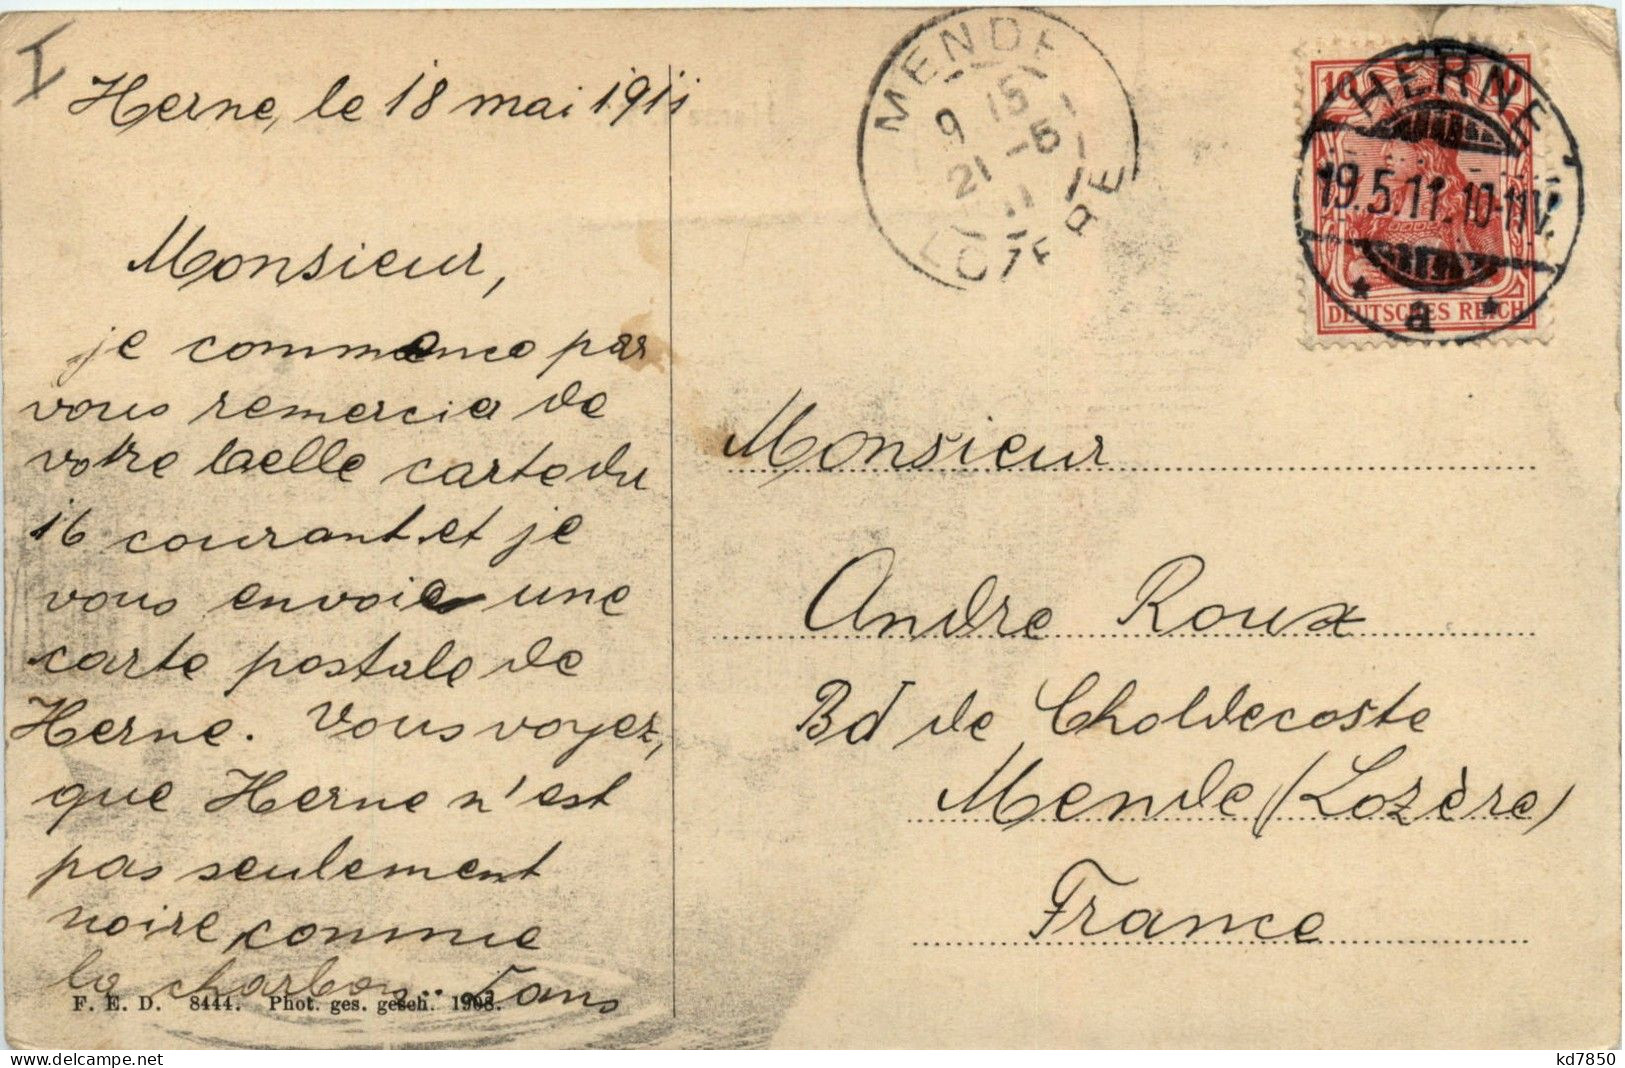 I
Herne, le 18 mai 1911
Monsieur,
je commence par
vous remercier de
votre belle carte du
16 courant et je
vous envoie une
carte postale de
Herne. Vous voyez,
que Herne n'est
pas seulement
noire, comme
le charbon.. Sans
F. E. D. 8444. Phot. ges. gesch. 1908.
MENDE
9 15
21 -5
11
LOZERE
10 10
HERNE
19.5.11.10-11V.
* a *
DEUTSCHES REICH
Monsieur
Andre Roux
Bd de Choldecoste
Mende (Lozère)
France
kd7850
www.delcampe.net